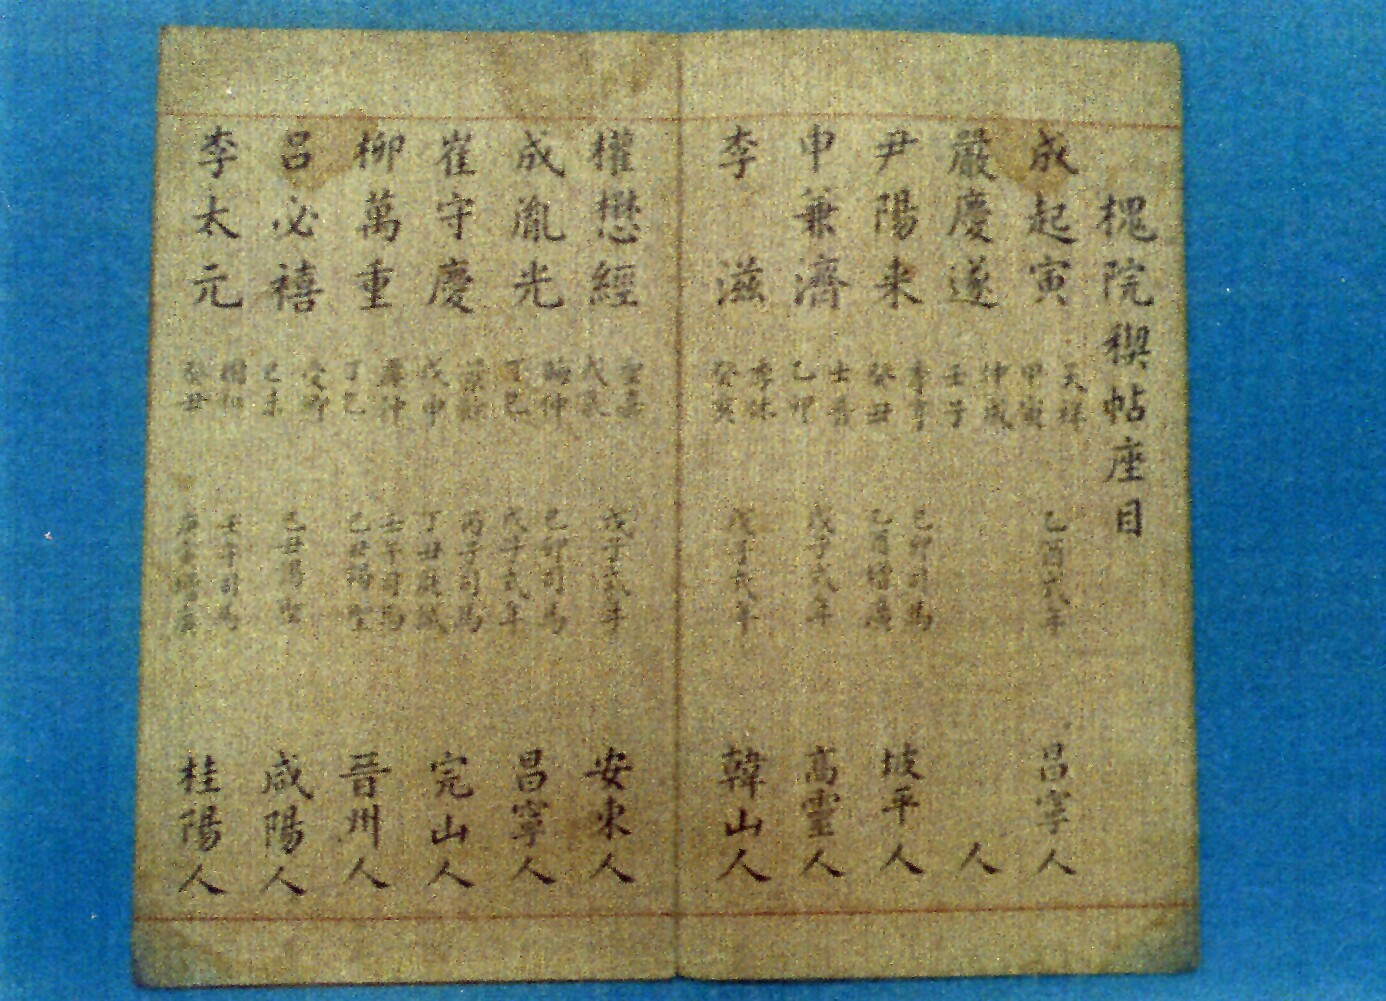 槐院稧帖座目
成起寅 天祥 甲寅 乙酉式年 昌寧人
嚴慶遂 仲成 壬子 人
尹陽來 季亨 癸丑 己卯司馬 乙酉增廣 坡平人
申兼濟 士晋 乙卯 戊子式年 高靈人
李滋 癸亥 戊子式年 韓山人
權懋經 戊子式年 安東人
成胤光 丁巳 己卯司馬 戊子式年 昌寧人
崔守慶 戊申 丙子司馬 丁丑庭試 完山人
柳萬重 丁巳 壬午司馬 己丑謁聖 晉州人
呂必禧 己未 己丑謁聖 咸陽人
李太元 癸丑 壬午司馬 庚寅增廣 桂陽人